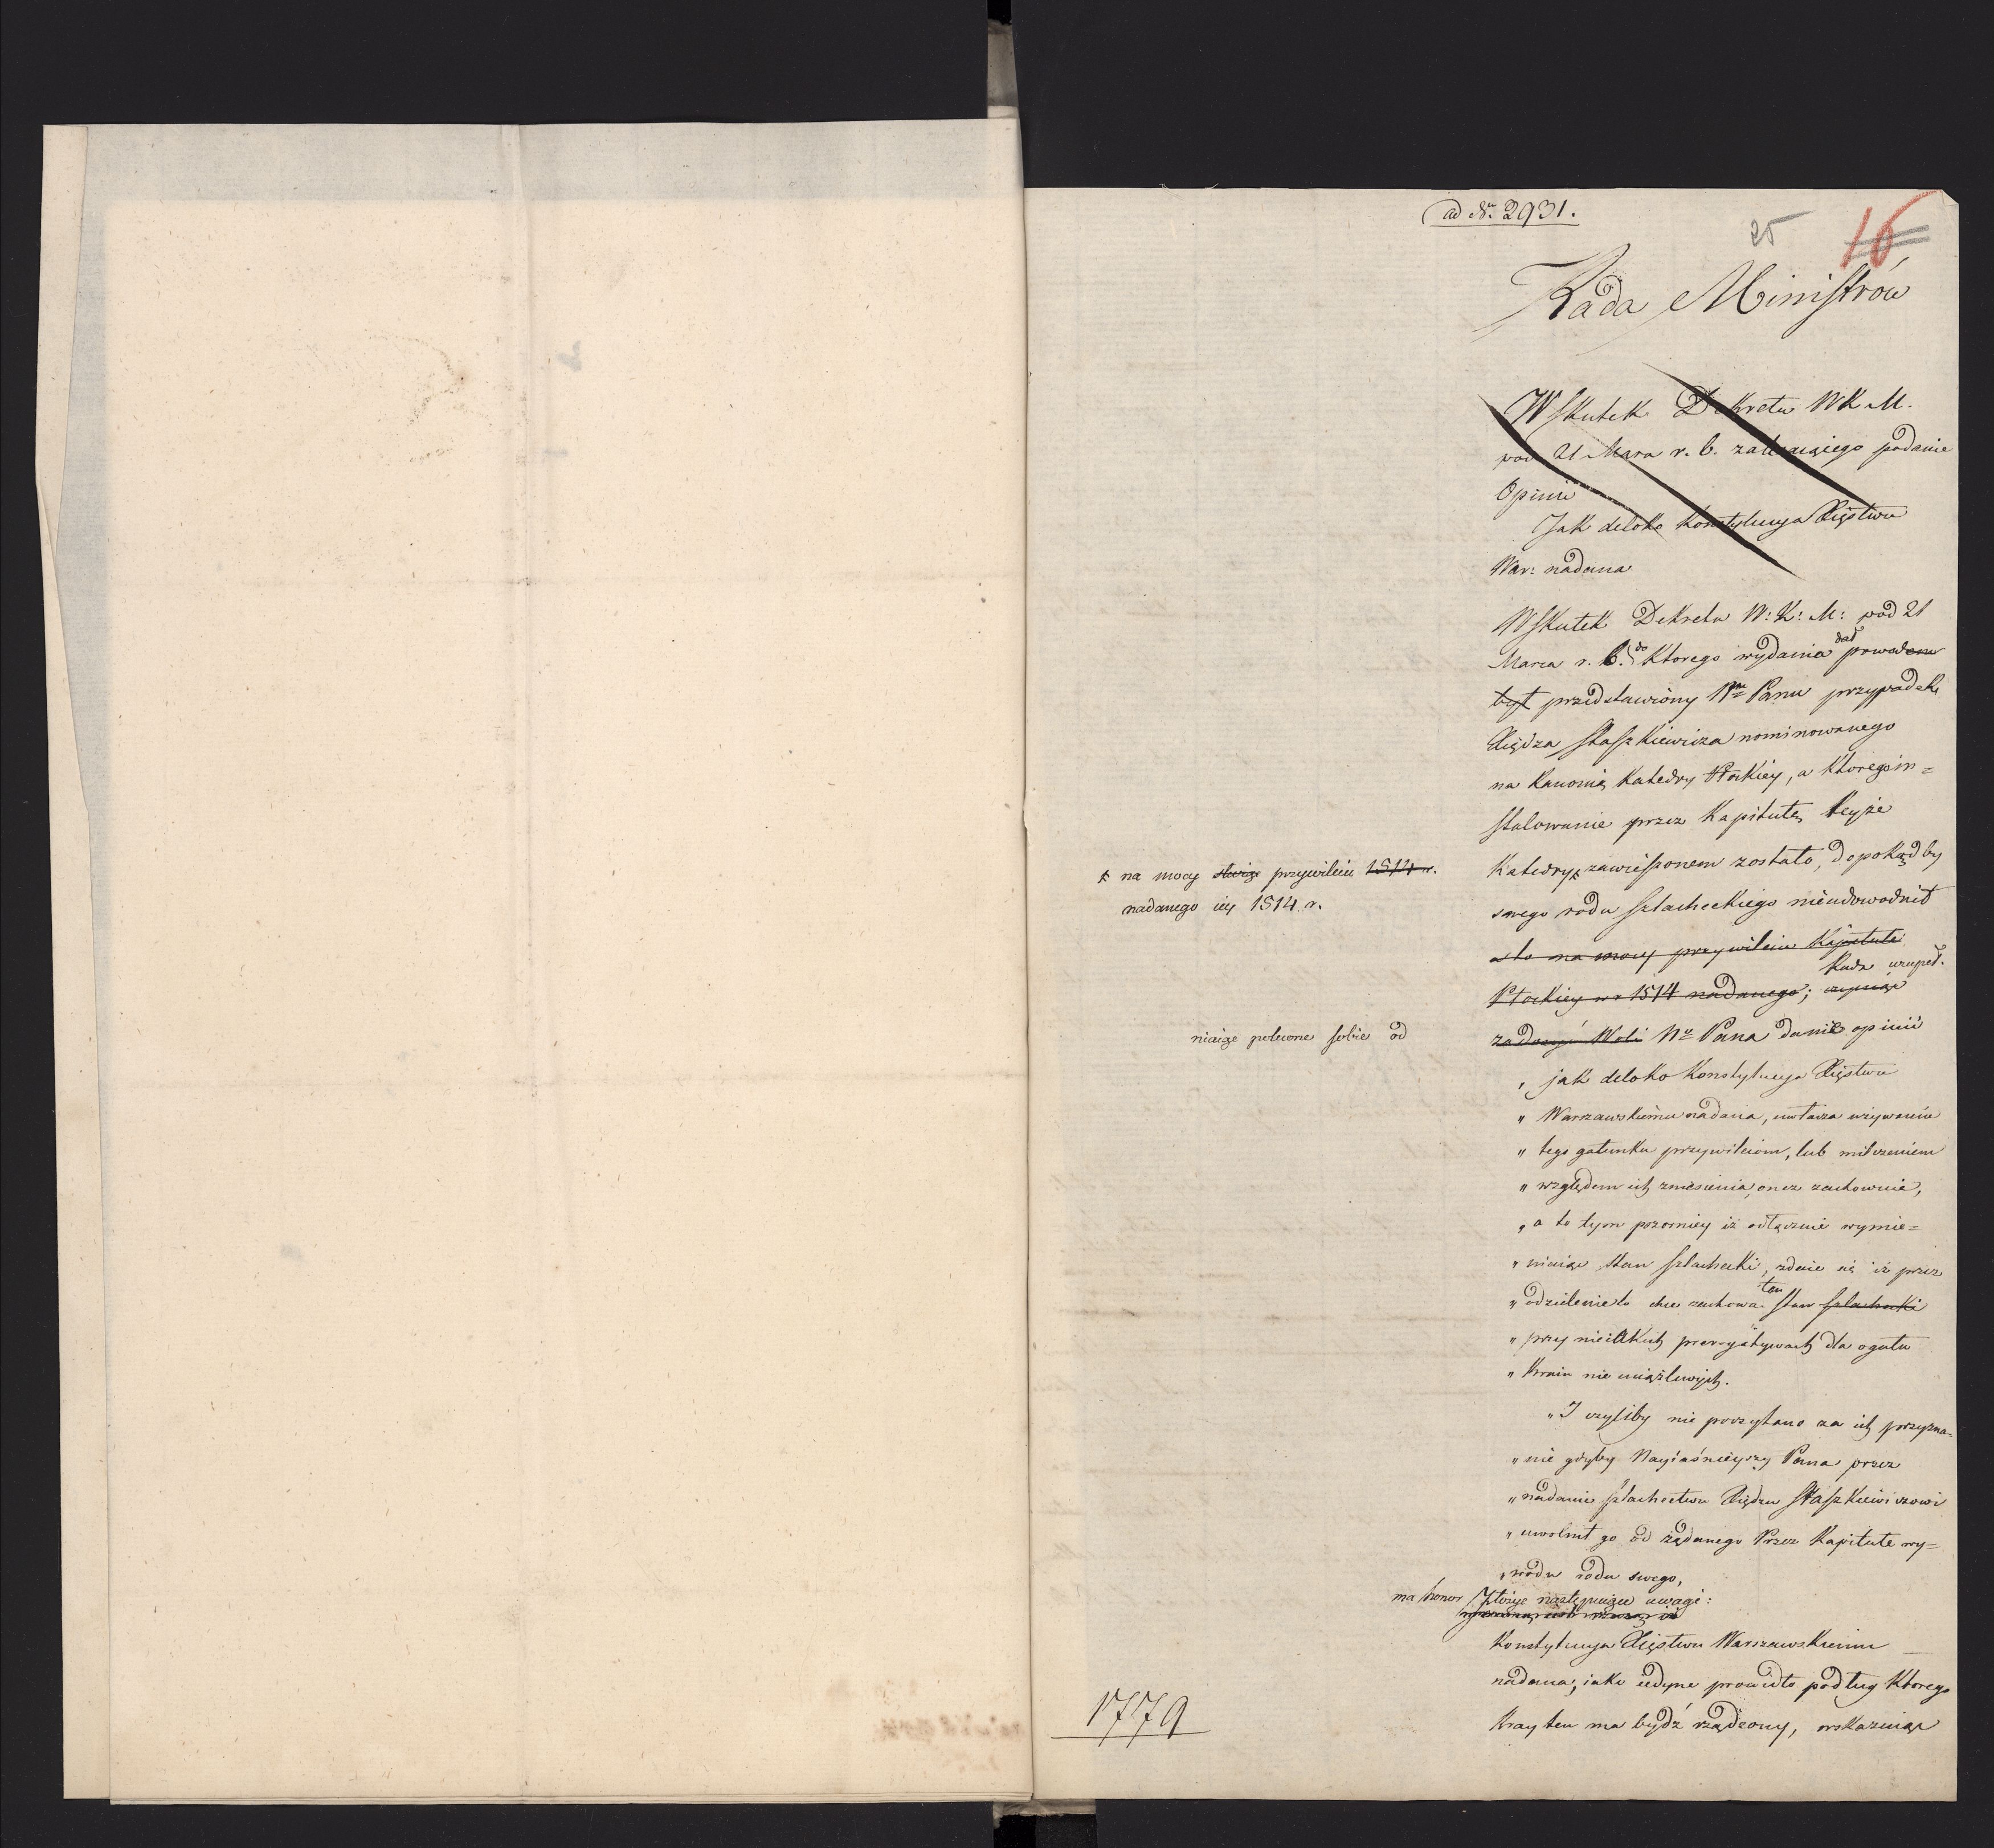 ad Nr. 2931.
25 16
Rada Ministrów
W skutek Dekretu WKM.
pod 21 Marca r. b. zalecaiącego podanie
Opinii
Jak deloko Konstytucya Xięstwu
War: nadana
W skutek Dekretu W: K: M: pod 21
Marca r. b. do ktorego wydania dał powodem
był przedstawiony Nmu Panu przypadek
Xiędza Staszkiewicza nominowanego
na Kanonią Katedry Płockiey, a ktorego in=
stalowanie przez Kapitułę teyże
Katedry, zawieszonem zostało, dopokądby
na mocy przywileiu 1514 r.
nadanego iey 1514 r.
swego rodu szlacheckiego nieudowodnił
a to na mocy przywileiu Kapitule
Płockiey w r 1514 nadanego; Rada uzupeł-
niaiąc polecone sobie od
zadosyć Woli No Pana danie opinii
„ jak deloko Konstytucya Xięstwu
„ Warszawskiemu nadana, uwłacza używaniu
„ tego gatunku przywileiom, lub milczeniem
„ względem ich zniesienia, onez zachowuie,
„ a to tym pozorniey iż odłącznie wymie=
„ niaiąc stan szlachecki, zdaie się iż przez
„ odzielenie to chce zachować ten stan szlachecki
„ przy nieiakich prerogatywach dla ogułu
„ kraiu nie uciążliwych.
„ I czyliby nie poczytano za ich przyzna=
„ nie gdyby Nayiaśnieyszy Pana przez
„ nadanie szlachectwa Xiędzu Staszkiewiczowi
„ uwolnił go od żądanego Przez Kapitułe wy=
„ wodu rodu swego,
ma honor złożyć następuiące uwagi:
Konstytucya Xięstwu Warszawskiemu
nadana, iako iedyne prawidło podług ktorego
Kray ten ma bydź rządzony, wskazuiąc
1779